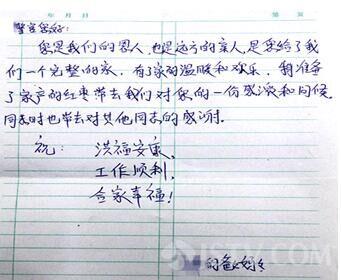 年 月 日
第 页
警官您好:
您是我们的恩人,也是远方的亲人,是您给了我
们一个完整的家,有了家的温暖和欢乐,我准备
了家产的红枣带去我们对您的一份感谢和问候
同志时也带去对其他同志的感谢.
祝: 洪福安康,
工作顺利,
合家幸福!
的爸妈